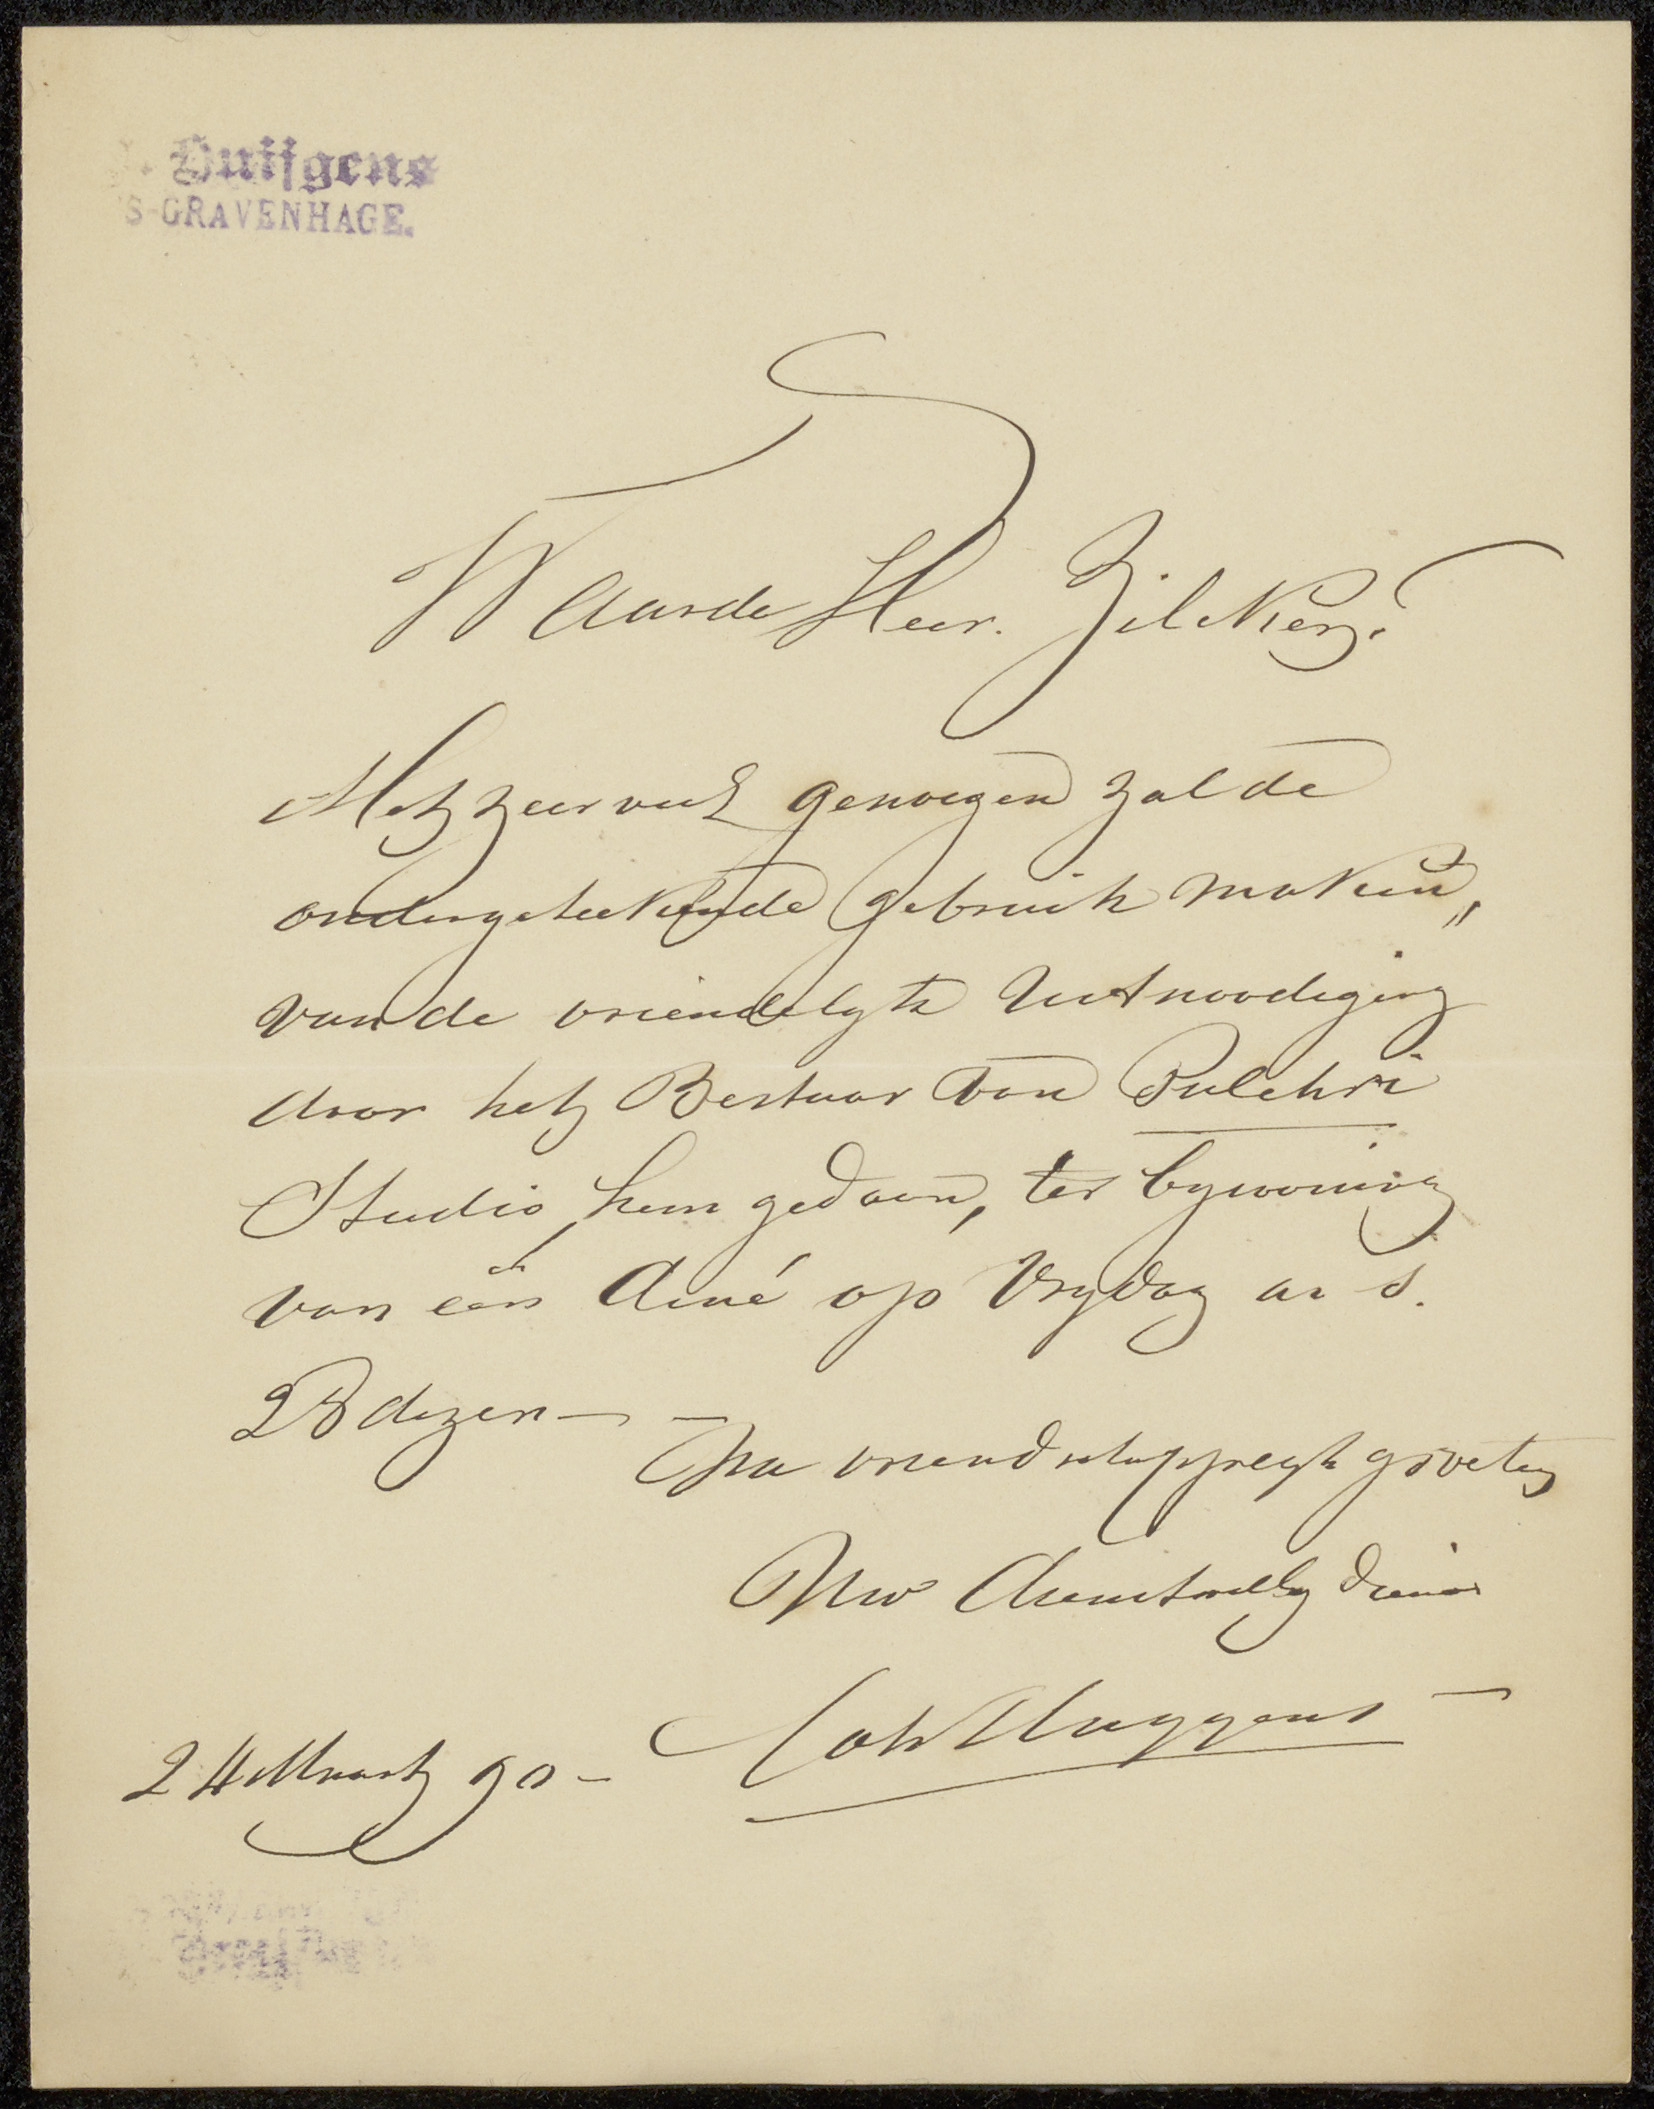 Huijgens
'S-GRAVENHAGE.
Waarde Heer. Zilcken.
Met zeer veel genoegen zal de
ondergeteekende gebruik maken„
van de vriendelyke Uitnoodiging
door het Bestuur van Pulchri
Studio, hem gedaan, ter bywoning
van een diné op Vrydag a. s.
28 dezer —
Na vriendschappelyk groeten
Uw dienstwillig dienaar
Joh Huygens
24 Maart 90 -